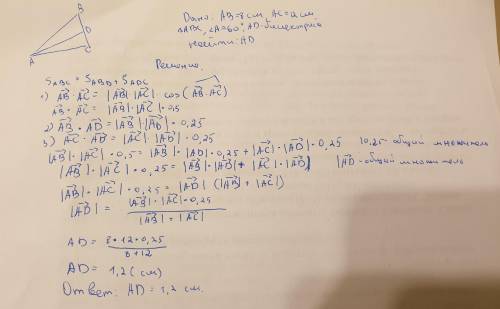 B
D
C
A
Дано: AB=8см, AC=12см
△ABC, ∠A=60°, AD-биссектриса
Найти: AD
Решение.
S ABC = S ABD + S ADC
1) AB · AC = |AB| · |AC| · cos(AB · AC)
AB · AC = |AB| · |AC| · 0,5
2) AB · AD = |AB| · |AD| · 0,25
3) AC · AD = |AC| · |AD| · 0,25
|AB| · |AC| · 0,5 = |AB| · |AD| · 0,25 + |AC| · |AD| · 0,25 | 0,25 - общий множитель
|AB| · |AC| · 0,25 = |AB| · |AD| + |AC| · |AD| | |AD| - общий множитель
|AB| · |AC| · 0,25 = |AD| (|AB| + |AC|)
|AD| = |AB| · |AC| · 0,25
|AB| + |AC|
AD = 8 · 12 · 0,25
8 + 12
AD = 1,2 (см)
Ответ: AD = 1,2 см.